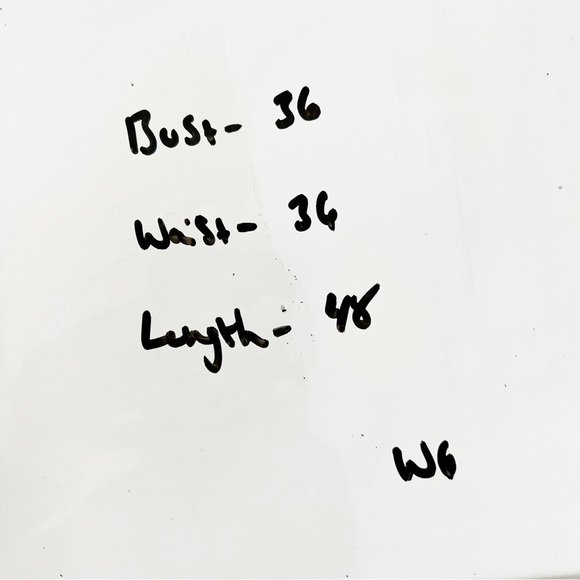 Bust- 36
Waist- 36
Length- 48
W6